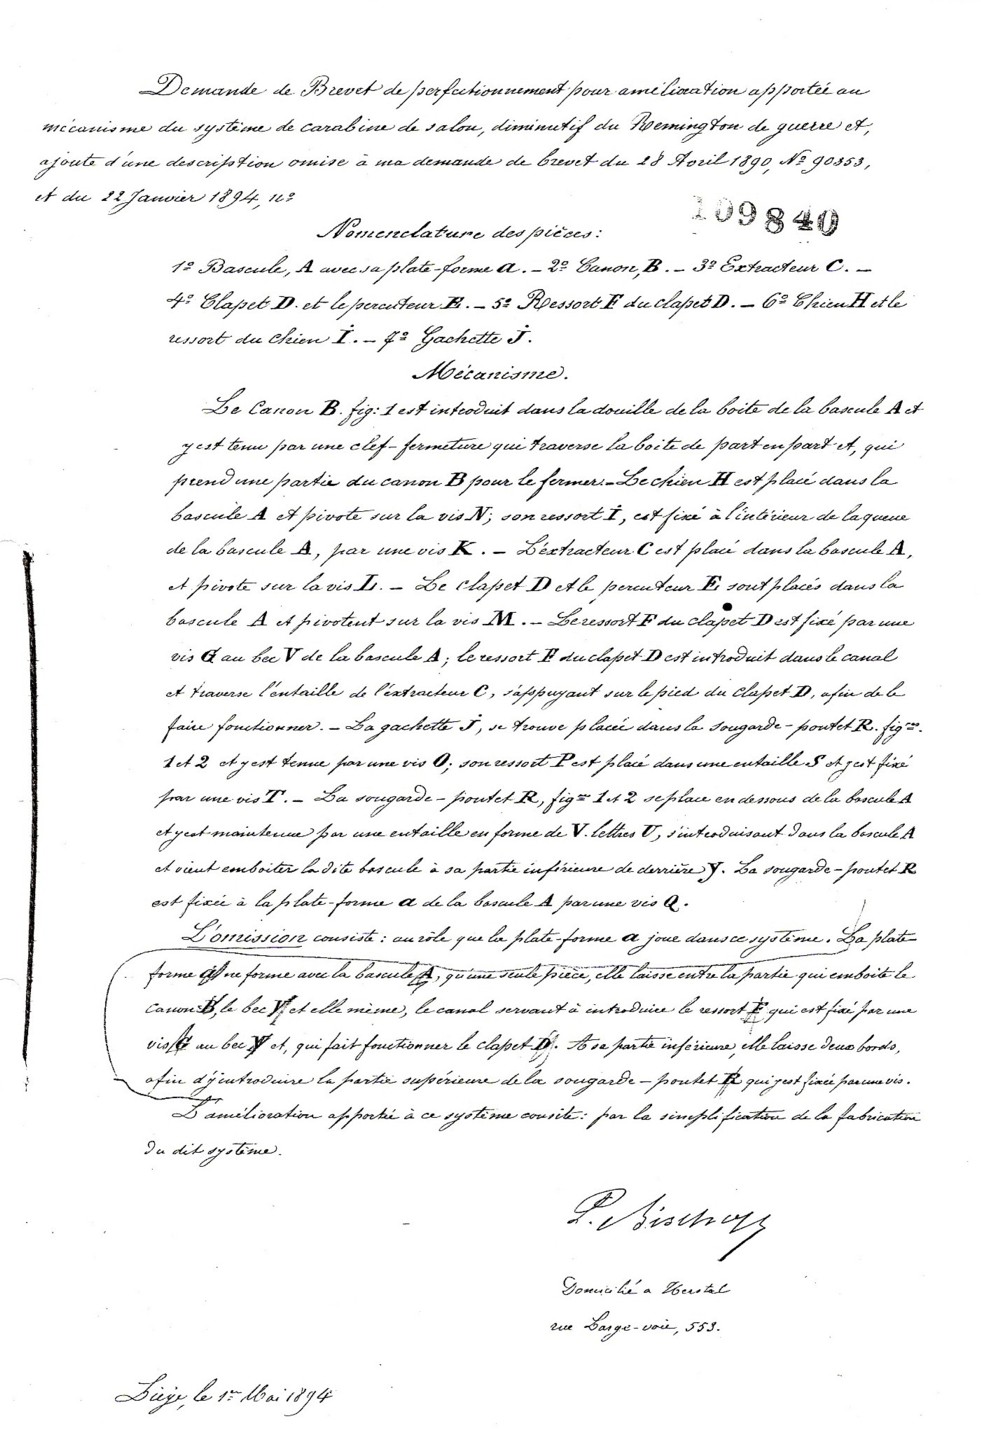 Demande de Brevet de perfectionnement pour amélioration apportée au
mécanisme du système de carabine de salon, diminutif du Remington de guerre et,
ajoute d'une description omise à ma demande de brevet du 28 Avril 1890, Nº 90353,
et du 22 Janvier 1894, nº
109840
Nomenclature des pièces:
1º Bascule, A avec sa plate-forme a. – 2º Canon, B. – 3º Extracteur C. –
4º Clapet D. et le percuteur E. – 5º Ressort F du clapet D. – 6º Chien H et le
ressort du chien I. – 7º Gachette J.
Mécanisme.
Le Canon B. fig: 1 est introduit dans la douille de la boite de la bascule A et
y est tenu par une clef-fermeture qui traverse la boite de part en part et, qui
prend une partie du canon B pour le fermer. – Le chien H est placé dans la
bascule A et pivote sur la vis N; son ressort I, est fixé à l'intérieur de la queue
de la bascule A, par une vis K. – L'extracteur C est placé dans la bascule A,
et pivote sur la vis L. – Le clapet D et le percuteur E sont placés dans la
bascule A et pivotent sur la vis M. – Le ressort F du clapet D est fixé par une
vis G au bec V de la bascule A; le ressort F du clapet D est introduit dans le canal
et traverse l'entaille de l'éxtracteur C, s'appuyant sur le pied du clapet D, afin de le
faire fonctionner. – La gachette J, se trouve placée dans la sougarde-pontet R. figres.
1 et 2 et y est tenue par une vis O; son ressort P est placé dans une entaille S et y est fixé
par une vis T. – La sougarde-pontet R, figres 1 et 2 se place en dessous de la bascule A
et y est maintenue par une entaille en forme de V. lettres U, s'introduisant dans la bascule A
et vient emboiter la dite bascule à sa partie inférieure de derrière Y. La sougarde-pontet R
est fixée à la plate-forme a de la bascule A par une vis Q.
L'omission consiste: au rôle que la plate-forme a joue dans ce système. La plate-
forme a ne forme avec la bascule A, qu'une seule pièce, elle laisse entre la partie qui emboite le
canon B, le bec V et elle même, le canal servant à introduire le ressort F qui est fixé par une
vis G au bec V et, qui fait fonctionner le clapet D. A sa partie inférieure, elle laisse deux bords,
afin d'y introduire la partie supérieure de la sougarde-pontet R qui y est fixée par une vis.
L'amélioration apporté à ce système consite: par la simplification de la fabrication
du dit système.
P. Bischoff
Domicilié à Herstal
rue Large-voie, 553.
Liège, le 1er Mai 1894